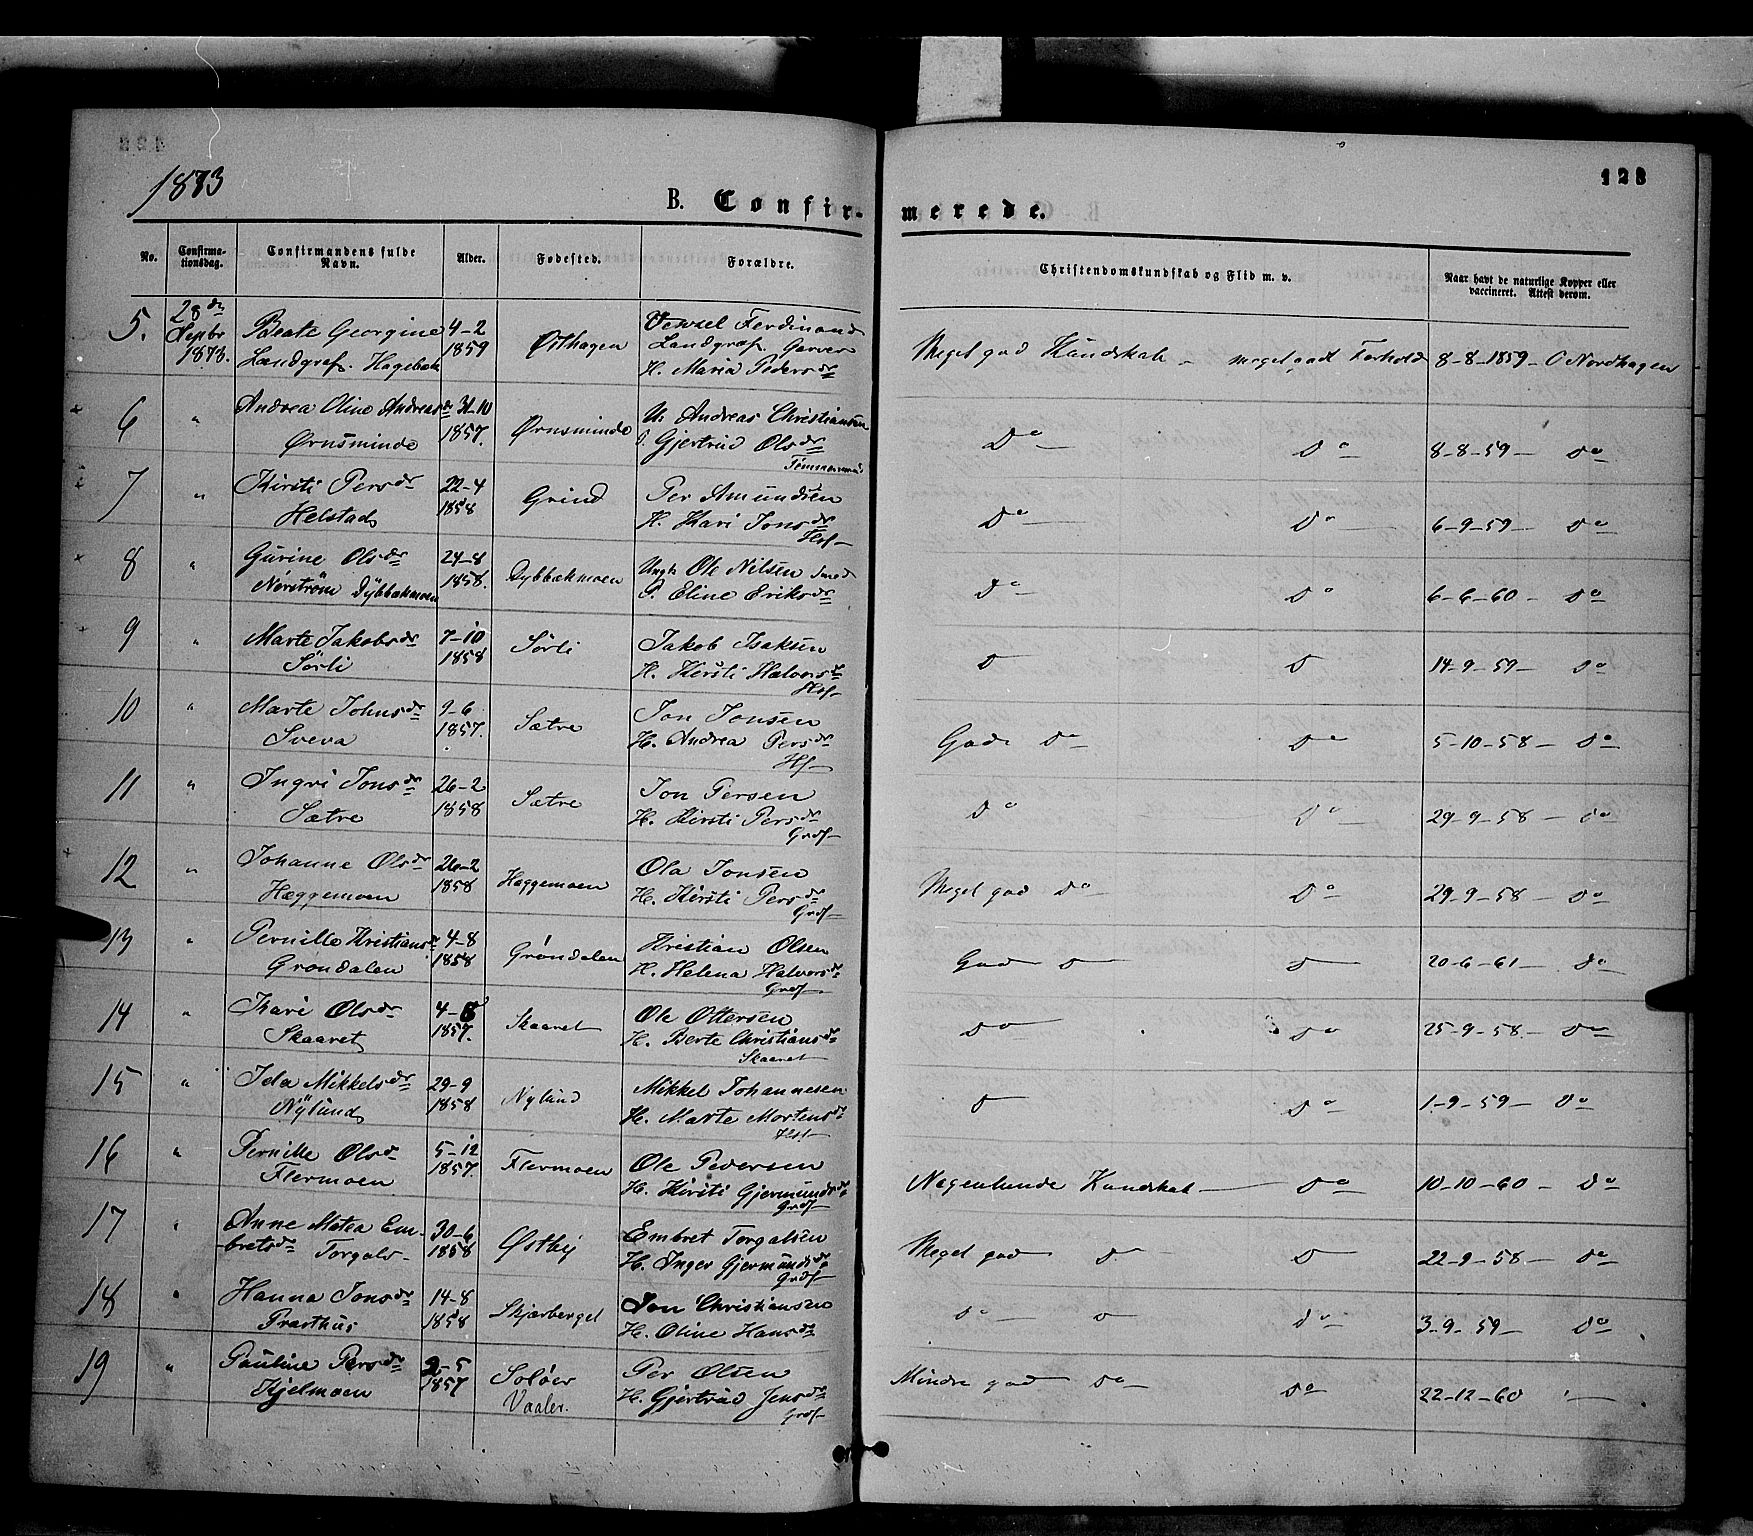 1873
128
B. Confir-merede.
No. Confirma-tionsdag. Confirmandens fulde Navn. Alder. Fødested. Forældre. Christendomskundskab og Flid m. v. Naar havt de naturlige Kopper eller vaccineret. Attest derom.
5. 28de Septbr 1873. Beate Georgine 4-2 Østhagen Ferdinand
Landgraf. 1859 Landgraf. Garver
H. Maria Pedersdr Meget god Kundskab - meget godt Forhold 8-8-1859- O Nordhagen
6 " Andrea Oline Andreasdr 31-10 Ørnsminde Andreas Christiansen
Ørnsminde 1857. Gjertrud Olsdr Do Do 8-8-59- Do
7 " Kirsti Persdr 22-4 Grind Per Amundsen
Helstad 1858 H. Kari Jonsdr Do Do 6-9-59- Do
8 " Gurine Olsdr 24-8 Dybbækmoen Ungk Ole Nilsen Smed
Nørstrøm Dybbækmoen 1858. P. Eline Eriksdr Do Do 6-6-60- Do
9 " Marte Jakobsdr 7-10 Sørli Jakob Isaksen
Sørli 1858 H. Kirsti Halvorsdr D D 14-9-59- Do
10 " Marte Johnsdr 9-6 Sætre Jon Jonsen
Sveva 1857. H. Andrea Persdr God Do Do 5-10-58- Do
Hf
11 " Ingri Jonsdr 26-2 Sætre Jon Persen
Sætre 1858 H. Kirsti Persdr Do Do 29-9-58- Do
Grdf
12 " Johanne Olsdr 26-2 Hæggemoen Ola Jonsen
Hæggemoen 1858 H. Kirsti Persdr Meget god Do Do 29-9-58- Do
Grdf
13 " Pernille Kristiansdr 4-8 Grøndalen Kristian Olsen
Grøndalen 1858 H. Helena Halvorsdr God D D 20-6-61- Do
Grdf.
14 " Kari Olsdr 4-8 Skaaret Ole Ottersen
Skaaret 1857. H. Berte Christiansdr Do Do 25-9-58- Do
Skaaret
15 " Ida Mikkelsdr 29-9 Nylund Mikkel Johannesen
Nylund 1858 H. Marte Mortensdr D Do 1-9-59- Do
16 " Pernille Olsdr 5-12 Flermoen Ole Pedersen
Flermoen 1857. H. Kirsti Gjermundsdr Nogenlunde Kundskab Do 10-10-60- Do
Grdf
17 " Anne Matea Em- 30-6 Østby Embret Torgalsen
bretsdr Torgals- 1858 H. Inger Gjermundsdr Meget god D D 22-9-58- Do
Grdf
18 " Hanna Jonsdr 14-8 Skjærberget Jon Christiansen
Præsthus 1858 H. Oline Hansdr Do D Do 3-9-59- Do
19 " Pauline Persdr 2-5 Soløer Per Olsen
Kjelmoen 1857 Vaaler. H. Gjertrud Jensdr Mindre god Do Do 22-12-60 "
Grdf